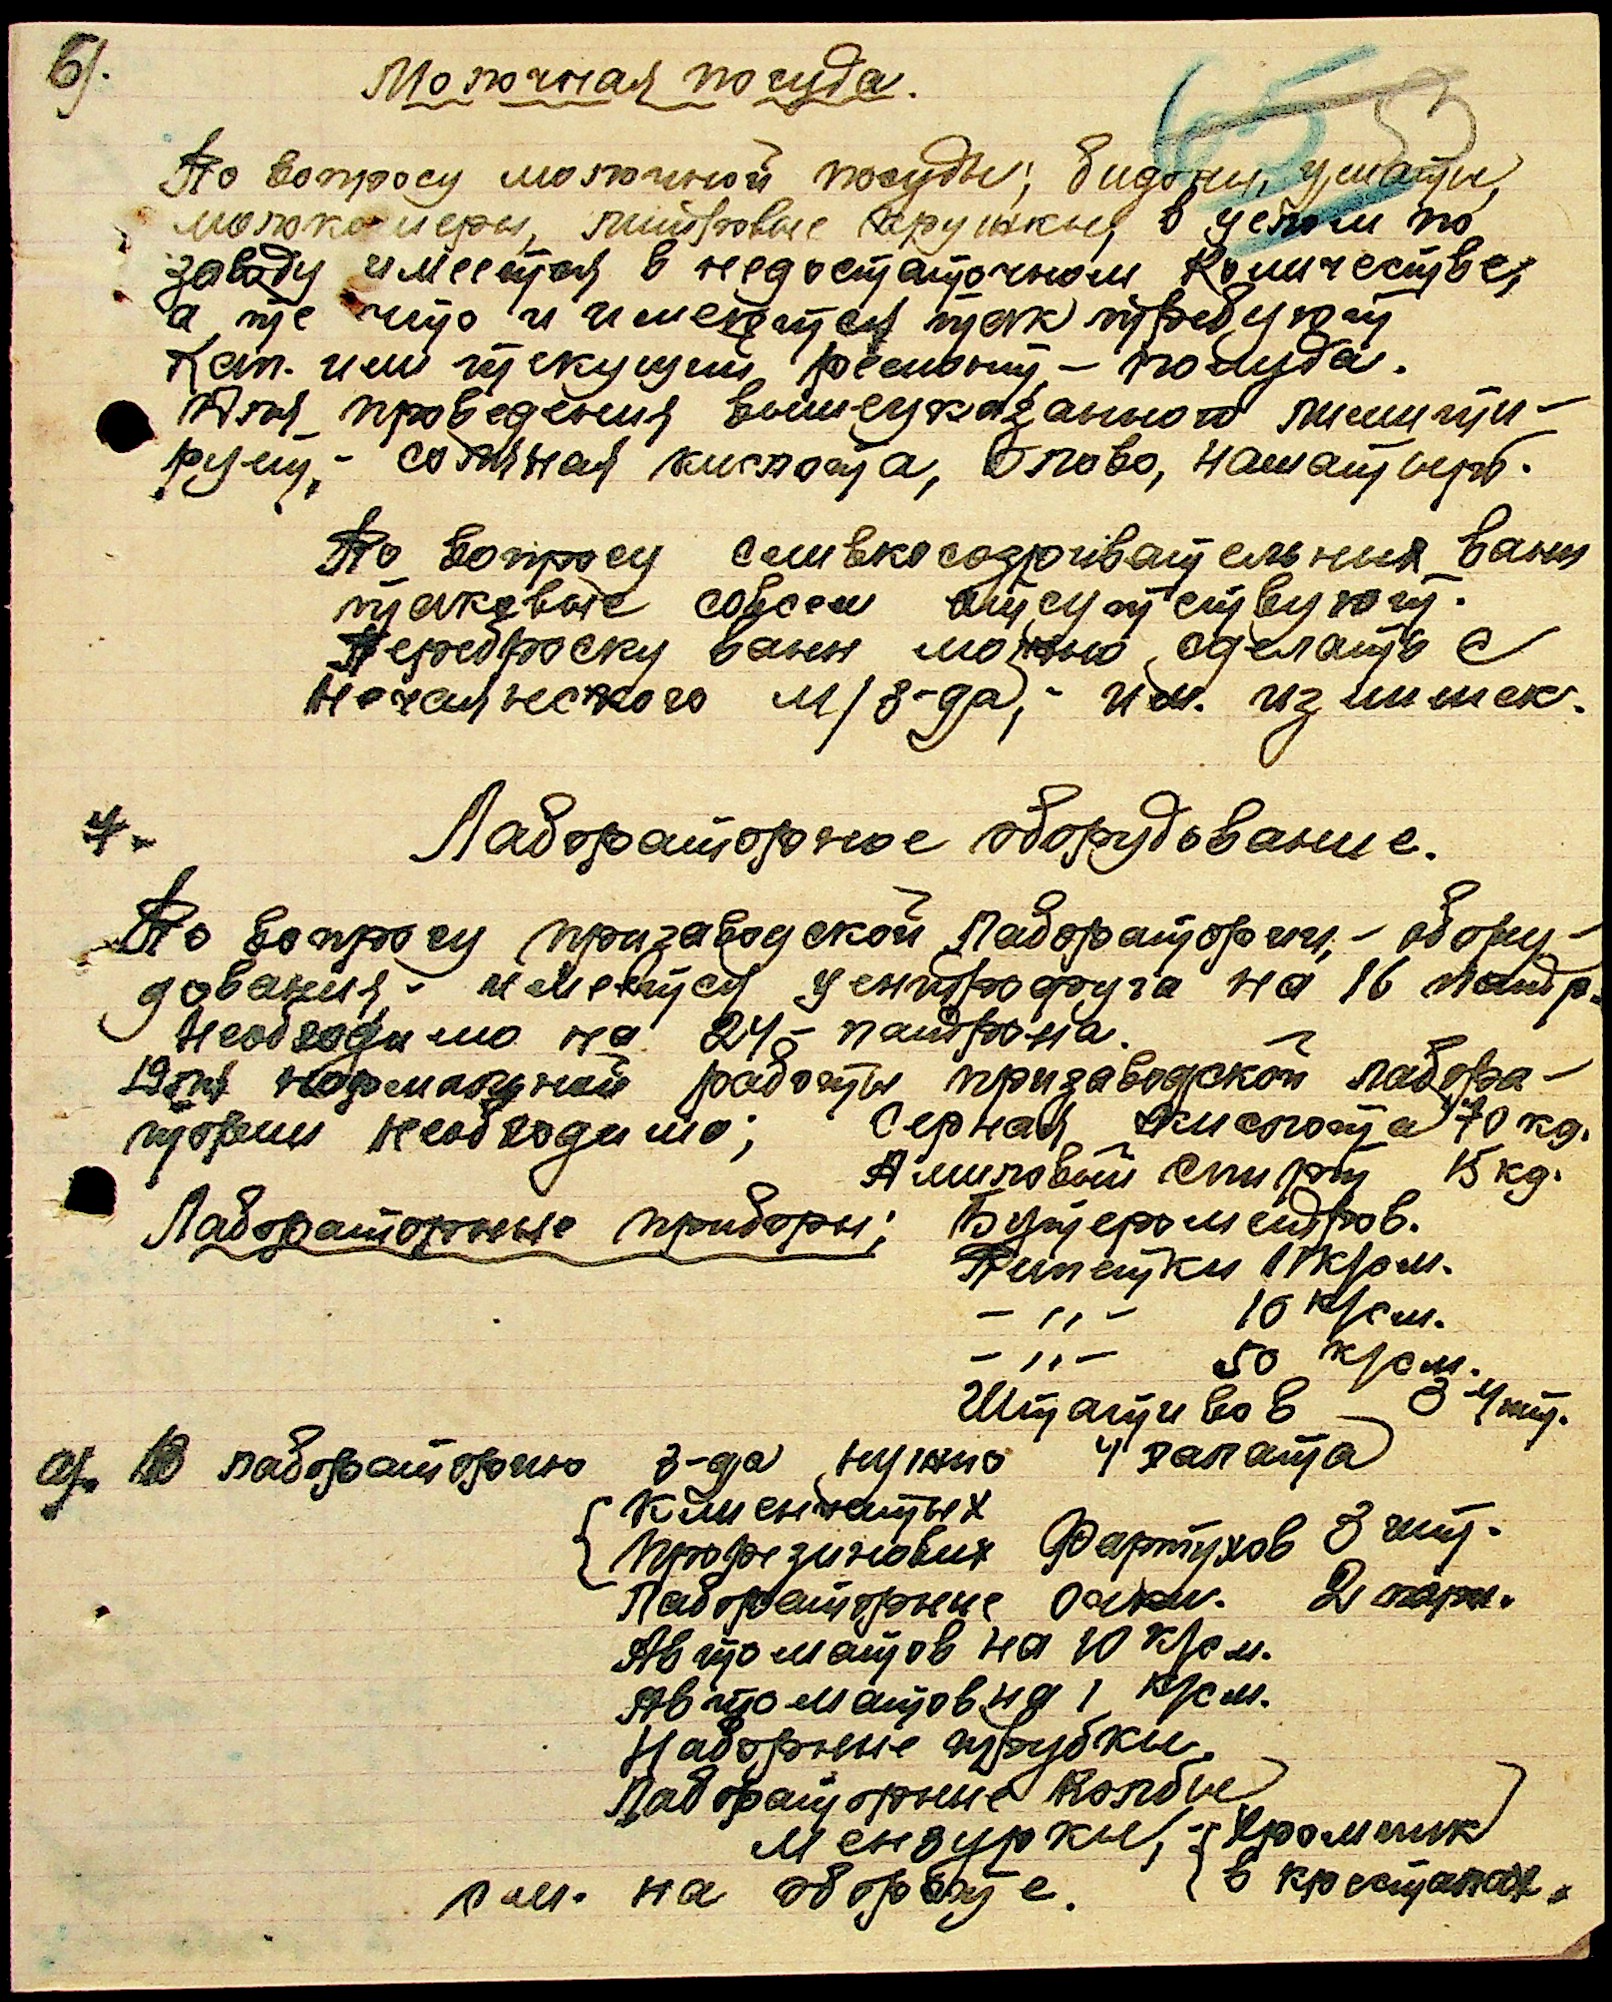 б).
Молочная посуда.
65 53
По вопросу молочной посуды; бидоны, ушаты,
молокомеры, литровые кружки, в целом по
заводу имеется в недостаточном количестве,
а те что и имеются так требуют
Кап. или текущий ремонт, - полуда.
Для проведения вышеуказанного лимити-
рует; - соляная кислота, Олово, нашатырь.
По вопросу сливкосозривательных ванн
таковые совсем отсутствуют.
Переброску ванн можно сделать с
м/з-да, - им. излишек.
4.
Лабораторное оборудование.
По вопросу призаводской лаборатории, - обору-
дования, - имеется центрофуга на 16 патр.
Необходимо на 24 - патрона.
Для нормальной работы призаводской лабора-
тории необходимо; Серная кислота 70 кг.
Амиловый спирт 15 кг.
Лабораторные приборы; Бутерометров.
Пипетки 11 к/см.
- ,, - 10 к/см.
- ,, - 50 к/см.
Штативов 3-4 шт.
а). В лабораторию з-да нужно 4 халата
Клеенчатых
Прорезиновых Фартухов 3 шт.
Лабораторные Очки. 2 пары.
Автоматов на 10 к/см.
Автоматов на 1 к/см.
Наборные трубки.
Лабораторные Колбы
мензурки, - Хромпик
в кристалах.
см. на обороте.